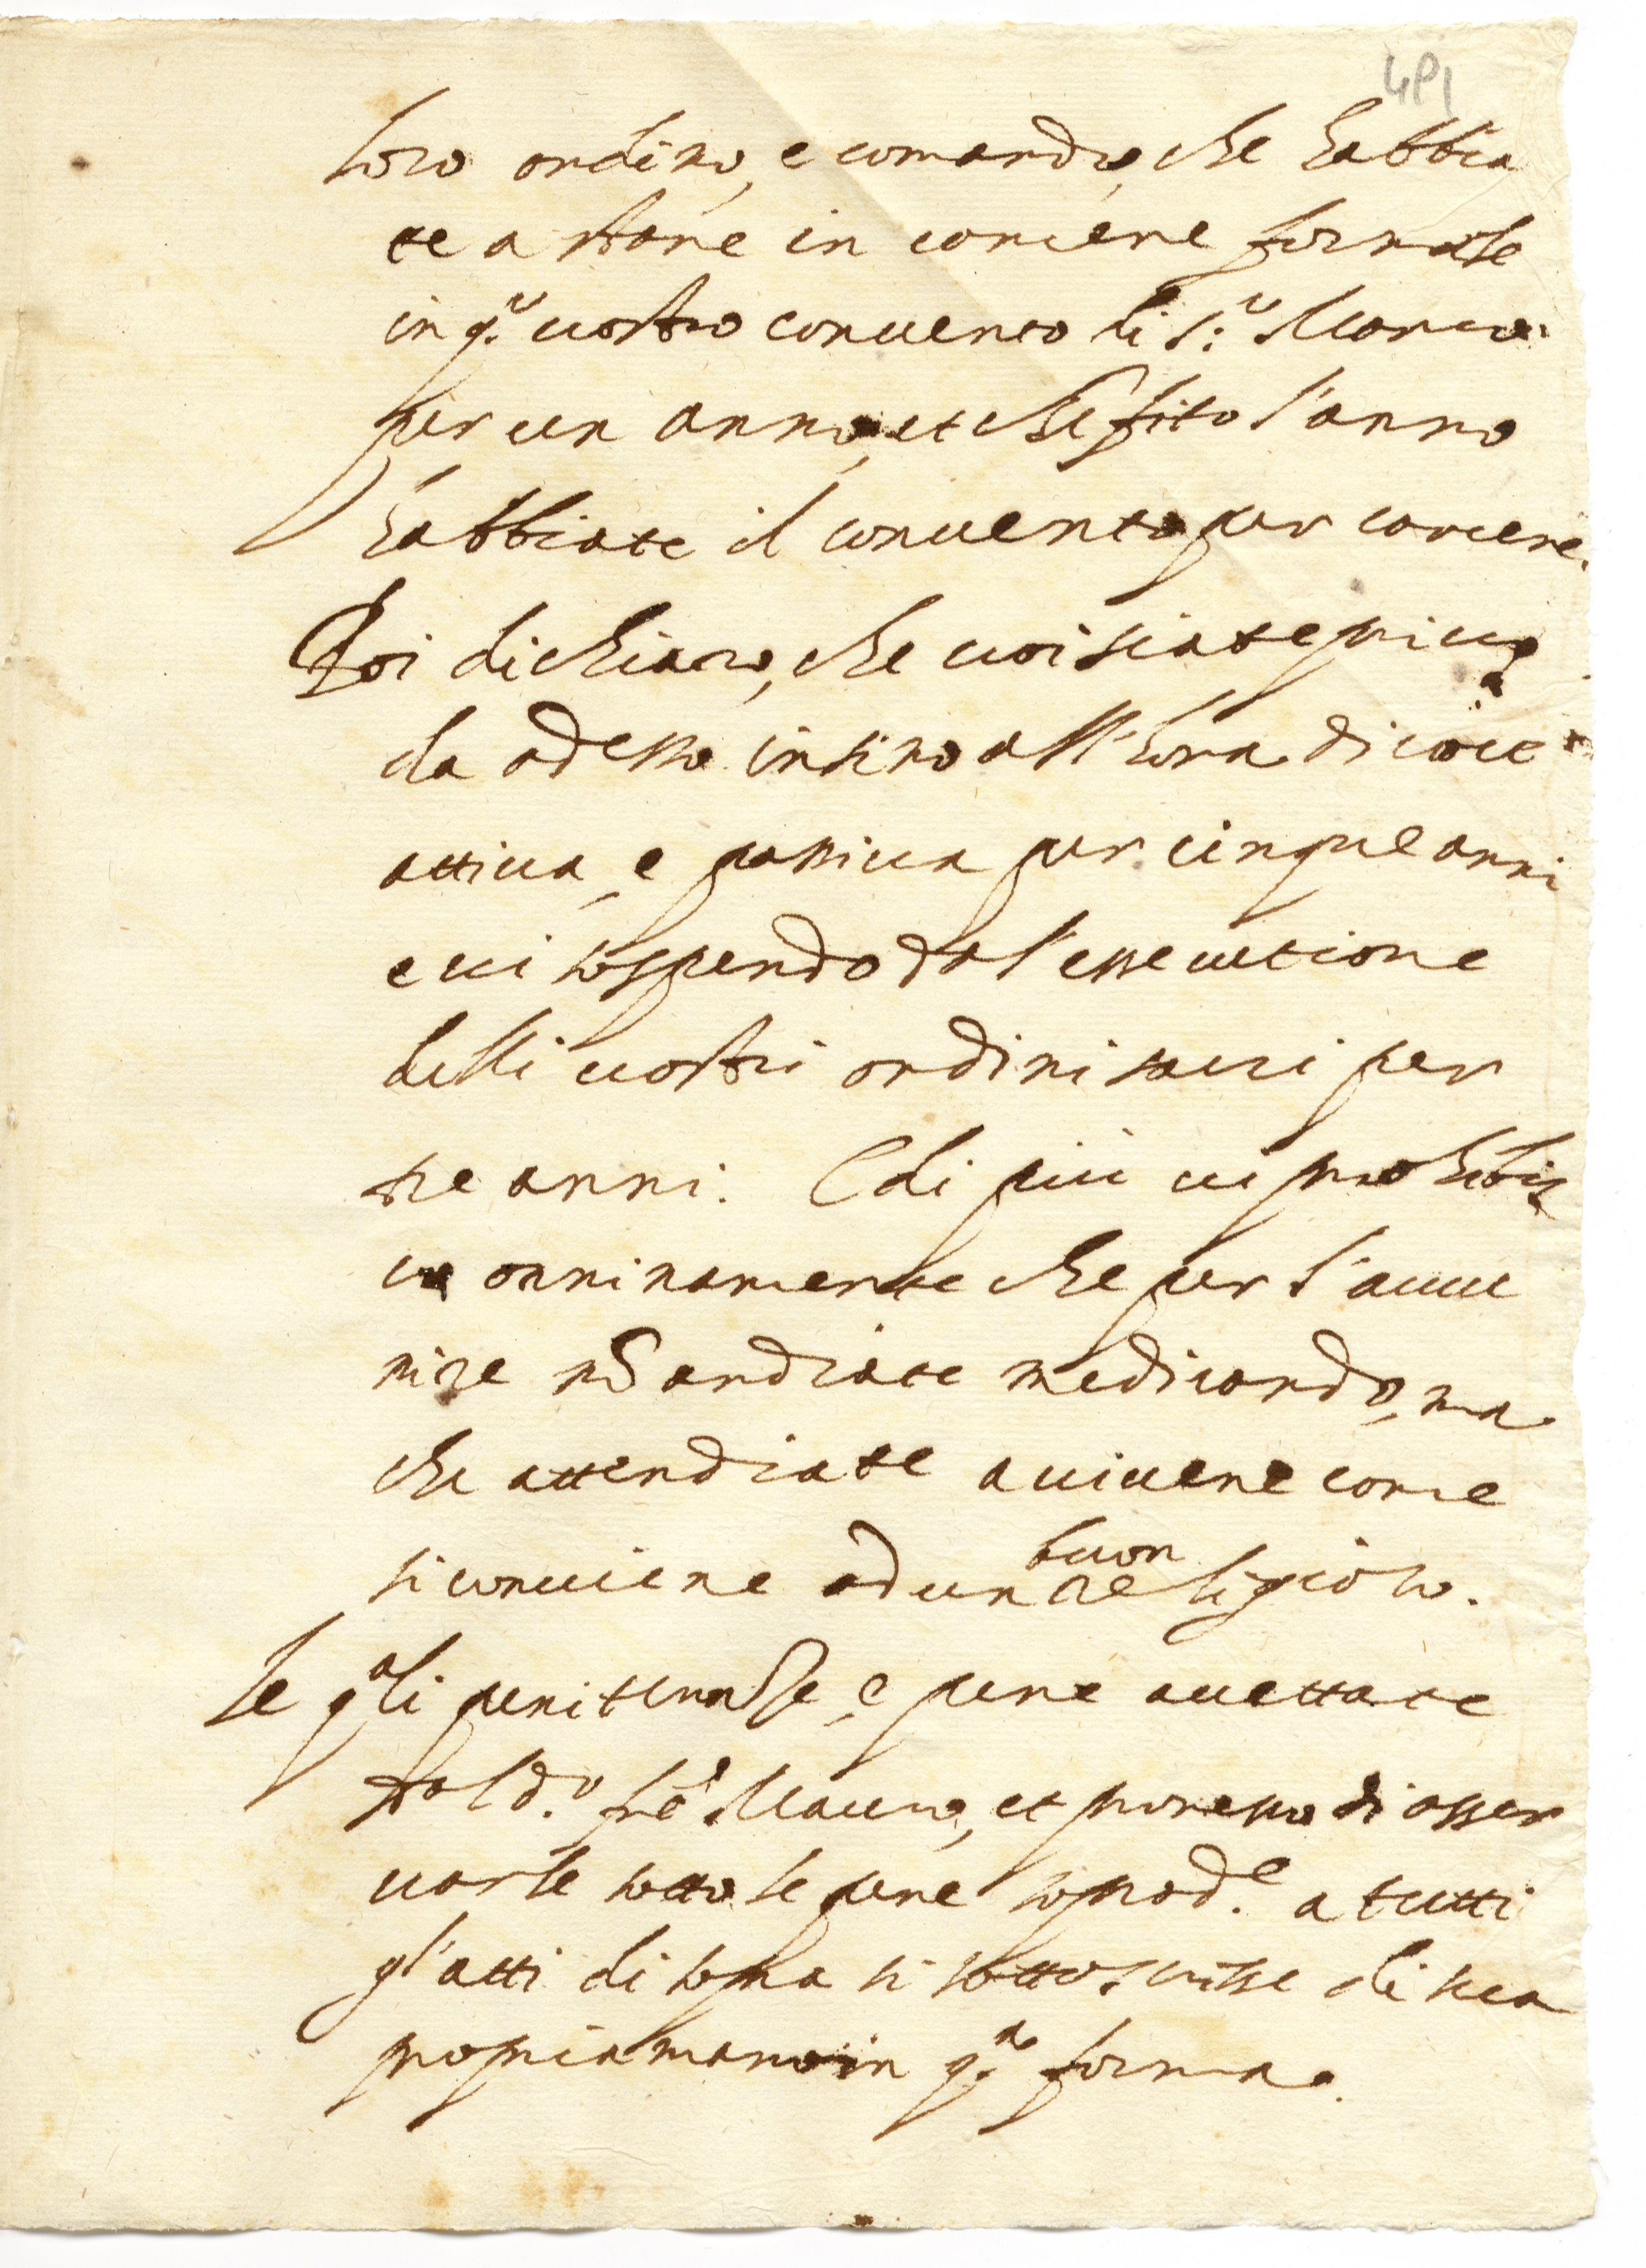 491
loro ordino, e comando, che habbia
te a stare in carcere formale
in q.º vostro convento di S.º Marco
per un anno, et che finito l'anno
habbiate il convento per carcere.
Poi dichiaro, che voi siate privo
da adesso insino all'hora di voce
attiva, e passiva per cinque anni
e vi sospendo dal'essecutione
delli vostri ordini sacri per
tre anni. E di più vi prohibis
co onninamente che per l'avve
nire nō andiate medicando, ma
che attendiate a vivere come
si conviene ad un buon religioso.
le q.ali penitenze, e pene accettate
dal d.º fre Mauro, et promesso di osser
varle sotto le pene soprad.e a tutti
gl'atti di sopra si sottoscrisse di sua
propria mano in q.a forma.